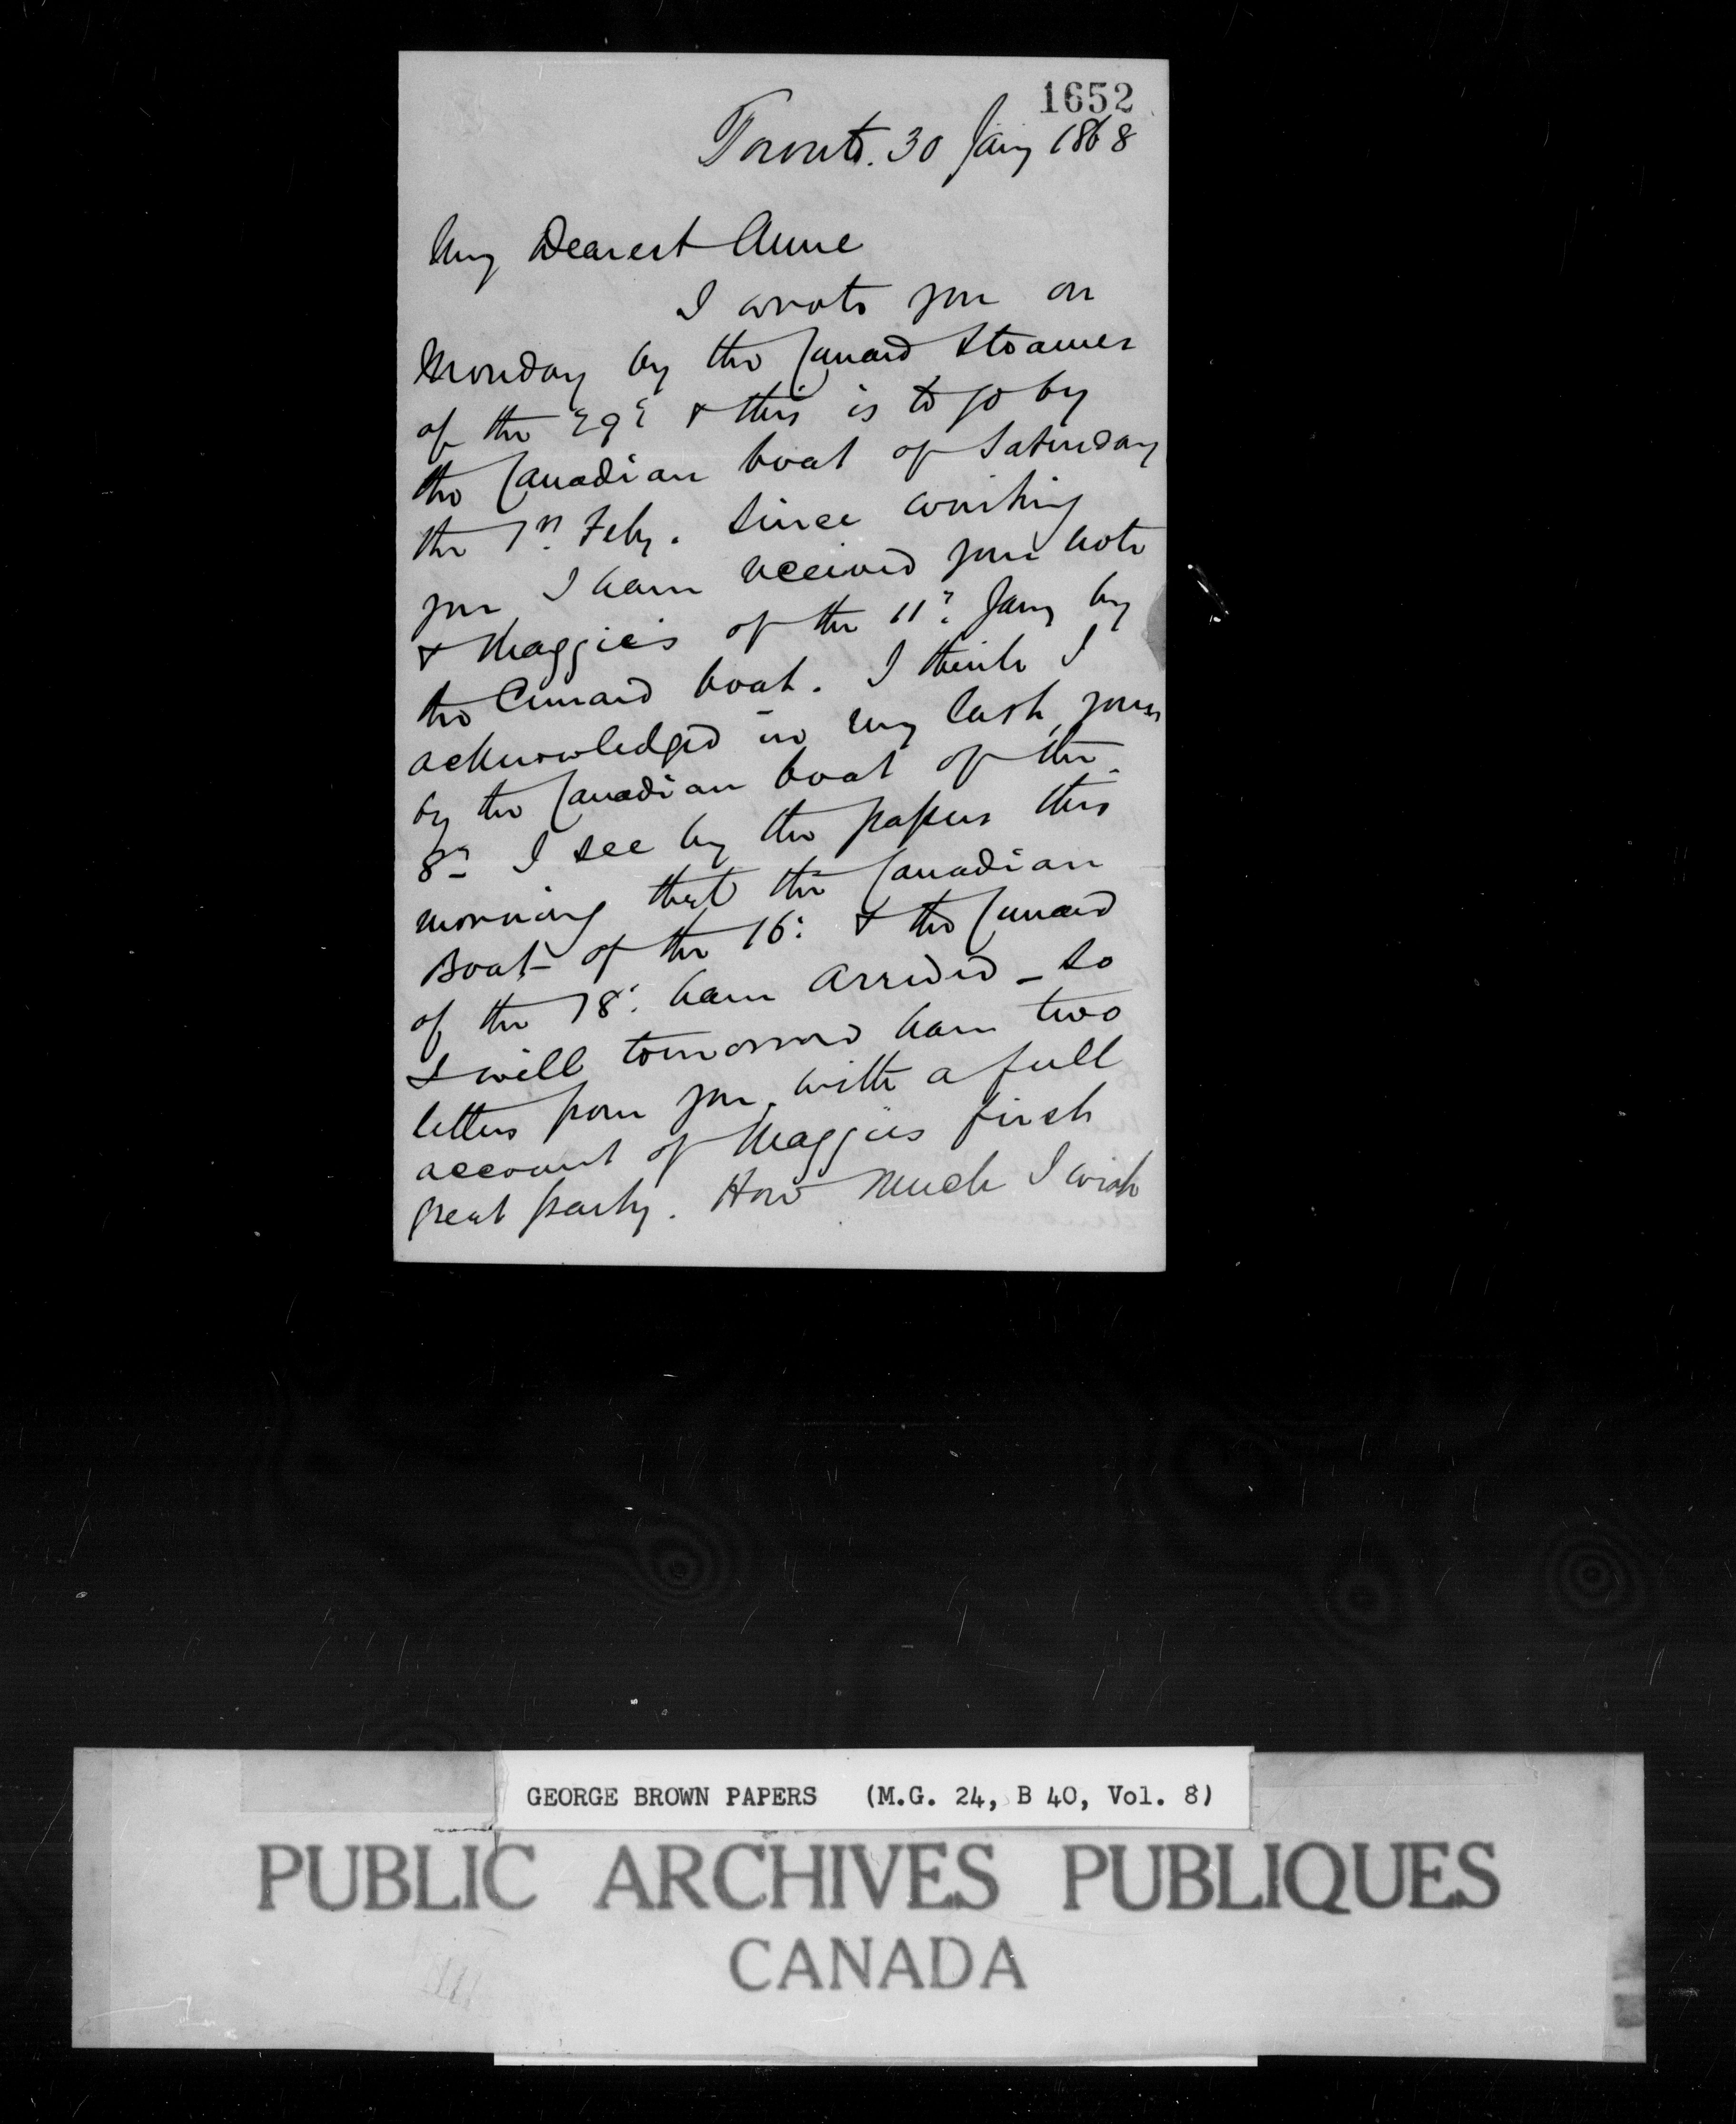 1652
Toronto. 30 Jany 1868
My Dearest Anne
I wrote you on
Monday by the Cunard Steamer
of the 29th & this is to go by
the Canadian boat of Saturday
the 1st Feby. Since writing
you I have received your note
& Maggie's of the 11th Jany by
the Cunard boat. I think I
acknowledged in my last, yours
by the Canadian boat of the
8th I see by the papers this
morning that the Canadian
Boat of the 16th & the Cunard
of the 18th have arrived - so
I will tomorrow have two
letters from you, with a full
account of Maggie's first
great party. How much I wish
GEORGE BROWN PAPERS (M.G. 24, B 40, Vol. 8)
PUBLIC ARCHIVES PUBLIQUES
CANADA